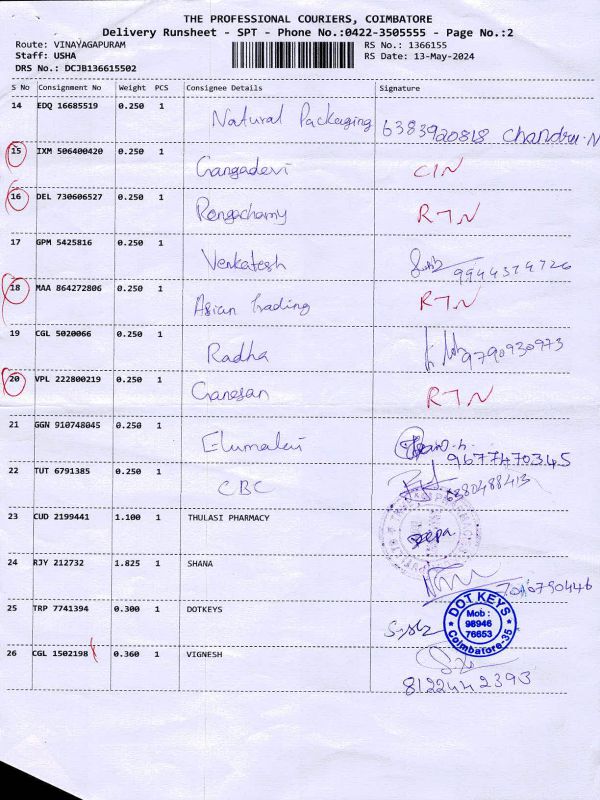 THE PROFESSIONAL COURIERS, COIMBATORE
Delivery Runsheet - SPT - Phone No.:0422-3505555 - Page No.:2
Route: VINAYAGAPURAM RS No.: 1366155
Staff: USHA RS Date: 13-May-2024
DRS No.: DCJB136615502
S No Consignment No Weight PCS Consignee Details Signature
14 EDQ 16685519 0.250 1 Natural Packaging 6383920818 Chandru.N
15 IXM 506400420 0.250 1 Gangadevi CIN
16 DEL 730606527 0.250 1 Rengachamy RTN
17 GPM 5425816 0.250 1 Venkatesh 9944374726
18 MAA 864272806 0.250 1 Asian trading RTN
19 CGL 5020066 0.250 1 Radha 9790930973
20 VPL 222800219 0.250 1 Ganesan RTN
21 GGN 910748045 0.250 1 Elumalai 9677470345
22 TUT 6791385 0.250 1 CBC 6380488413
23 CUD 2199441 1.100 1 THULASI PHARMACY Deepa
24 RJY 212732 1.825 1 SHANA 7010790446
25 TRP 7741394 0.300 1 DOTKEYS
DOT KEYS
Mob :
98946
76653
Coimbatore-35
26 CGL 1502198 0.360 1 VIGNESH
8122442393